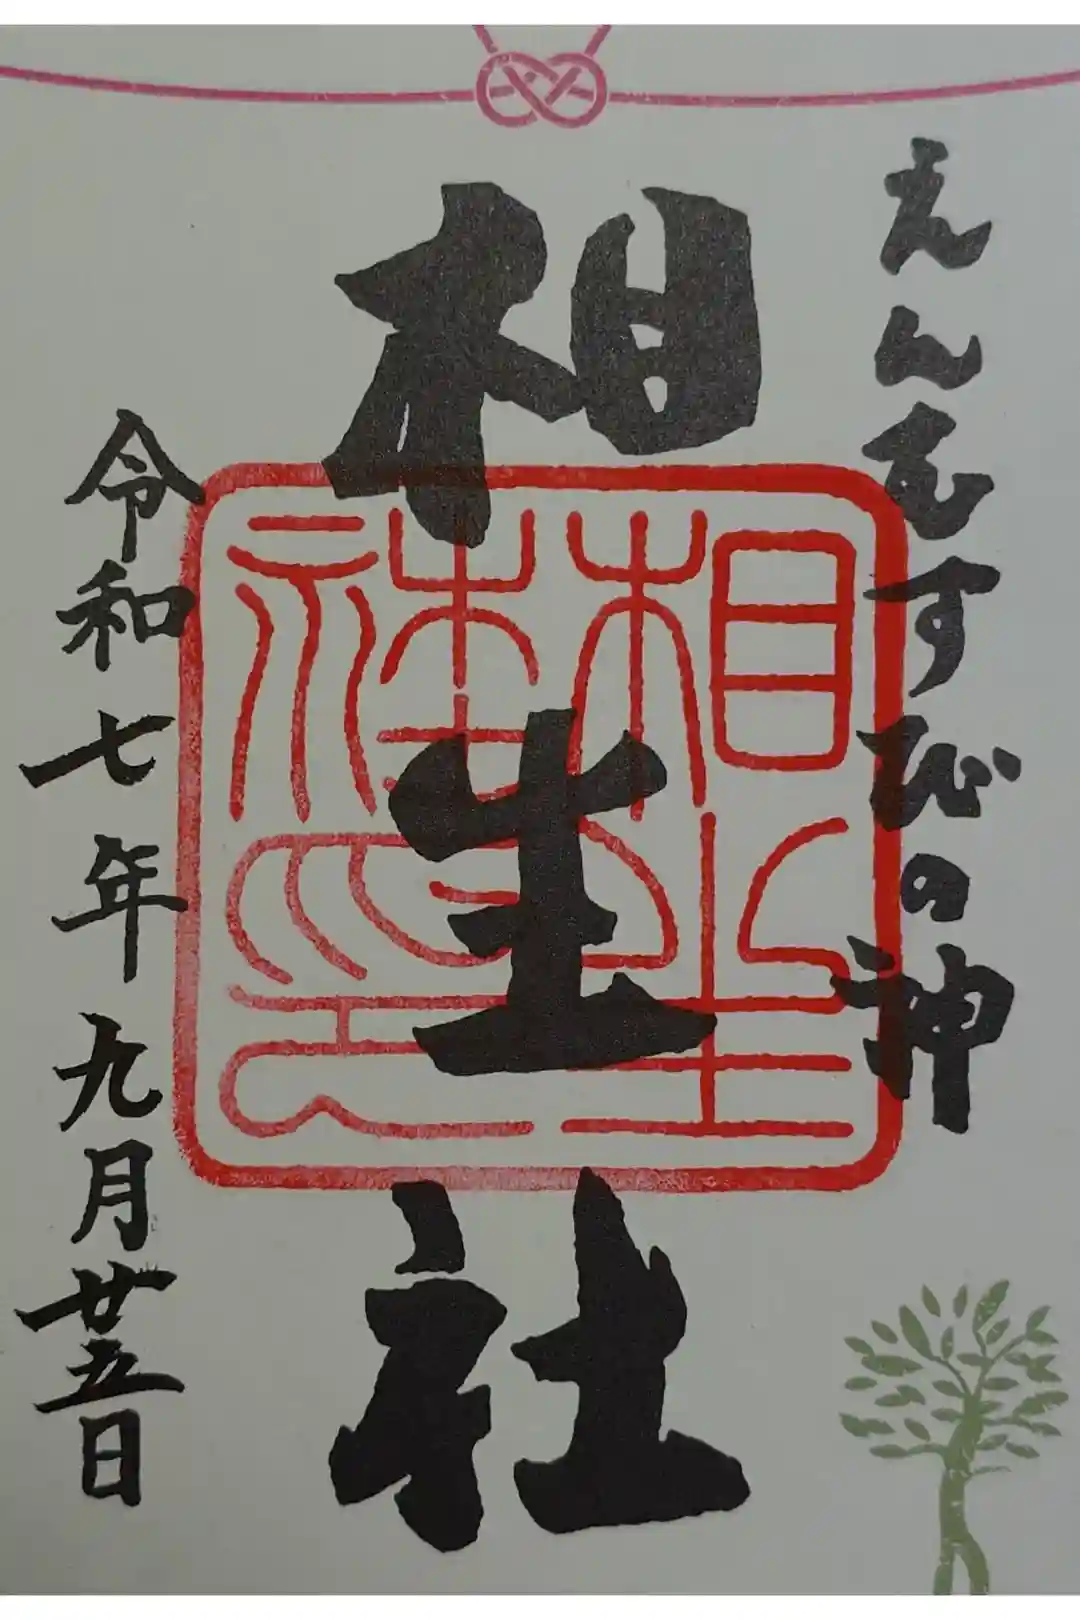 えんむすびの神
相生社
令和七年九月廿五日